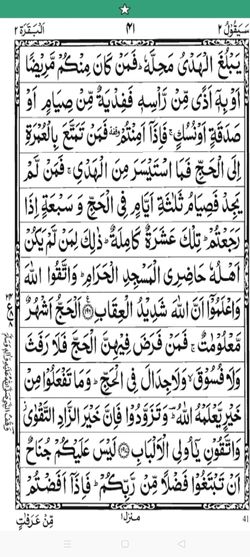 سَيَقُوْلُ ٢ ۴۱ اَلْبَقَرَة ٢
يَبْلُغَ الْهَدْىُ مَحِلَّهٗ ؕ فَمَنْ كَانَ مِنْكُمْ مَّرِيْضًا
اَوْ بِهٖۤ اَذًى مِّنْ رَّاْسِهٖ فَفِدْيَةٌ مِّنْ صِيَامٍ اَوْ
صَدَقَةٍ اَوْ نُسُكٍ ۚ فَاِذَاۤ اَمِنْتُمْ ۥ فَمَنْ تَمَتَّعَ بِالْعُمْرَةِ
اِلَى الْحَجِّ فَمَا اسْتَيْسَرَ مِنَ الْهَدْىِ ۚ فَمَنْ لَّمْ
يَجِدْ فَصِيَامُ ثَلٰثَةِ اَيَّامٍ فِى الْحَجِّ وَ سَبْعَةٍ اِذَا
رَجَعْتُمْ ؕ تِلْكَ عَشَرَةٌ كَامِلَةٌ ؕ ذٰلِكَ لِمَنْ لَّمْ يَكُنْ
اَهْلُهٗ حَاضِرِى الْمَسْجِدِ الْحَرَامِ ؕ وَاتَّقُوا اللّٰهَ
وَاعْلَمُوْۤا اَنَّ اللّٰهَ شَدِيْدُ الْعِقَابِ ۝١٩٦ اَلْحَجُّ اَشْهُرٌ
مَّعْلُوْمٰتٌ ۚ فَمَنْ فَرَضَ فِيْهِنَّ الْحَجَّ فَلَا رَفَثَ
وَلَا فُسُوْقَ ۙ وَلَا جِدَالَ فِى الْحَجِّ ؕ وَمَا تَفْعَلُوْا مِنْ
خَيْرٍ يَّعْلَمْهُ اللّٰهُ ؔ وَتَزَوَّدُوْا فَاِنَّ خَيْرَ الزَّادِ التَّقْوٰى ۫
وَاتَّقُوْنِ يٰۤاُولِى الْاَلْبَابِ ۝١٩٧ لَيْسَ عَلَيْكُمْ جُنَاحٌ
اَنْ تَبْتَغُوْا فَضْلًا مِّنْ رَّبِّكُمْ ؕ فَاِذَاۤ اَفَضْتُمْ
مِّنْ عَرَفٰتٍ منزل ١ 41